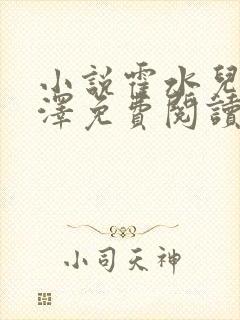 小說霍水兒
澤免費閱讀
小司天神